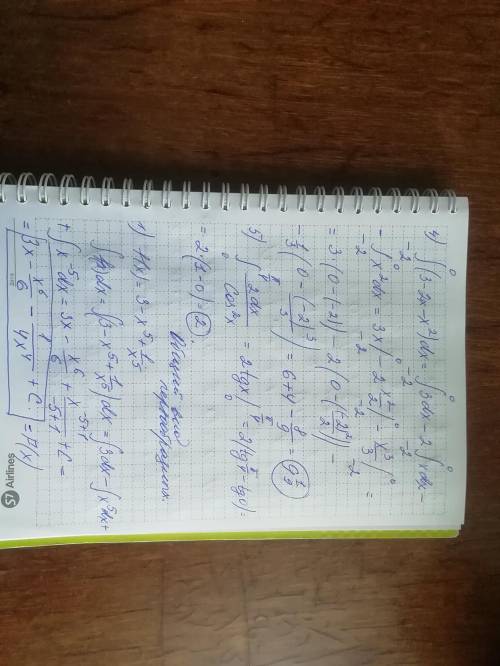 4) ∫₋₂⁰ (3-2x-x²)dx = ∫₋₂⁰ 3dx - 2 ∫₋₂⁰ xdx -
- ∫₋₂⁰ x²dx = 3x|₋₂⁰ - 2 x²/2|₋₂⁰ - x³/3|₋₂⁰ =
= 3·(0-(-2)) - 2(0-(-2)²/2) -
- 1/3(0-(-2)³/3) = 6+4-8/9 = 9 1/9
5) ∫₀ 2dx/Cos²x = 2tgx|₀ = 2(tg - tg0) =
= 2·(1-0) = 2.
Общий вид
первообразных.
1) f(x) = 3-x⁵+1/x⁵
∫f(x)dx = ∫(3-x⁵+1/x⁵)dx = ∫3dx - ∫x⁵dx +
+ ∫x⁻⁵dx = 3x - x⁶/6 + x⁻⁵⁺¹/-5+1 + C =
= 3x - x⁶/6 - 1/4x⁴ + C. = F(x)
S7 Airlines